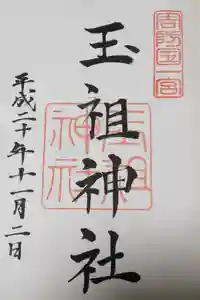 周防国一宮
玉祖神社
玉祖神社
平成二十年十一月二日